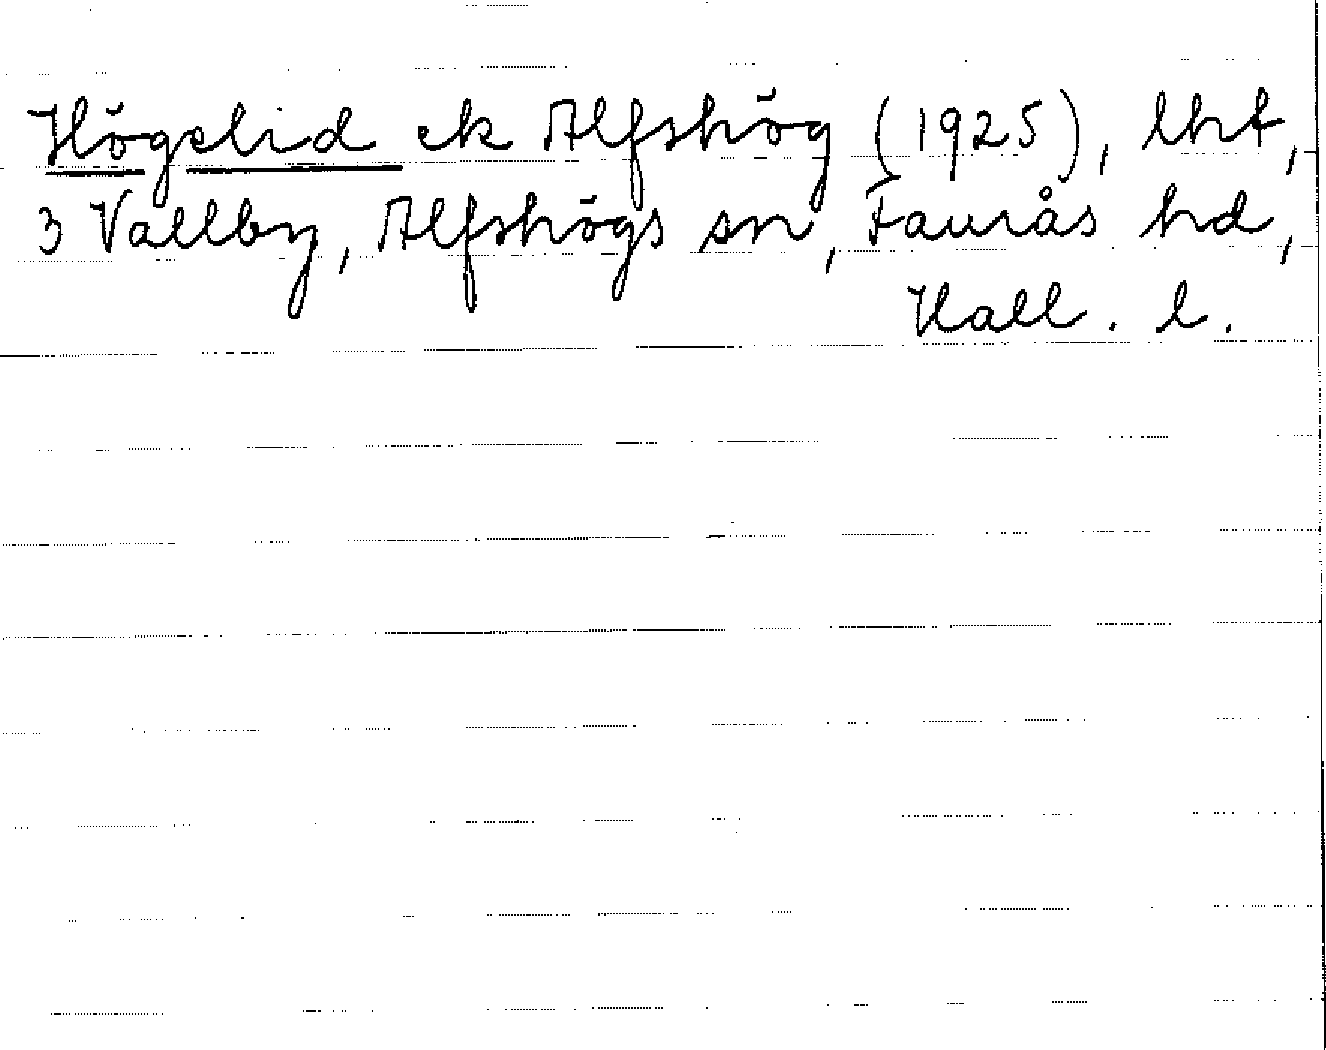 Högelid ek Alfshög (1925), lht,
3 Vallby, Alfshögs sn, Faurås hd,
Hall. l.